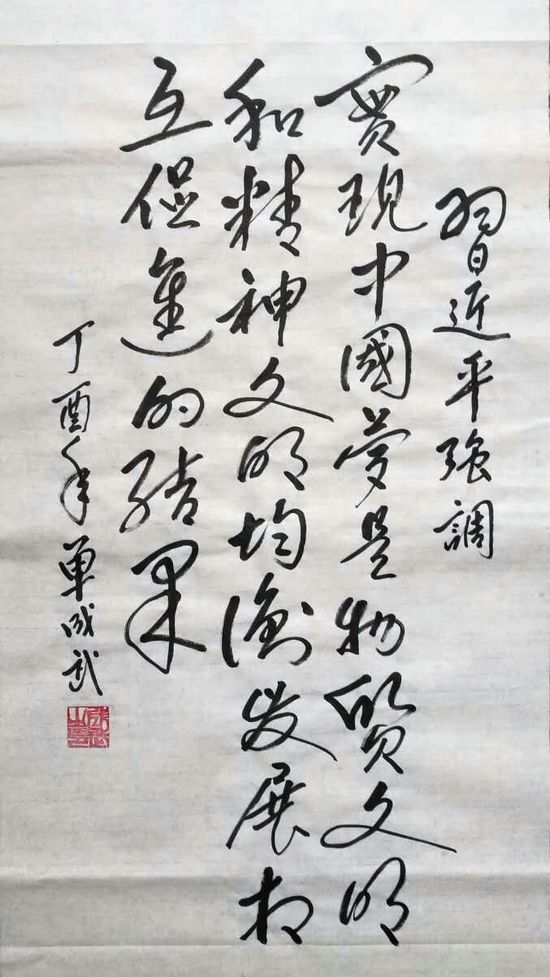 習近平强調
實現中國夢是物質文明
和精神文明均衡发展相
互促進的结果
丁酉年單成武